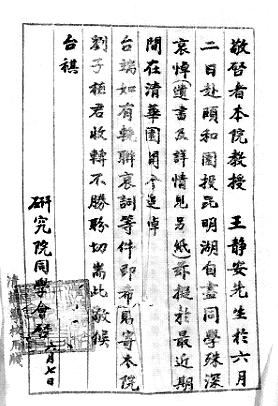 敬啓者本院教授　王靜安先生於六月
二日赴頤和園投昆明湖自盡同學殊深
哀悼(遺書及詳情見另紙)茲擬於最近期
間在清華園開會追悼
台端如有輓聯哀詞等件即希賜寄本院
劉子植君收轉不勝盼切耑此敬候
台祺
研究院同學會啓　六月七日